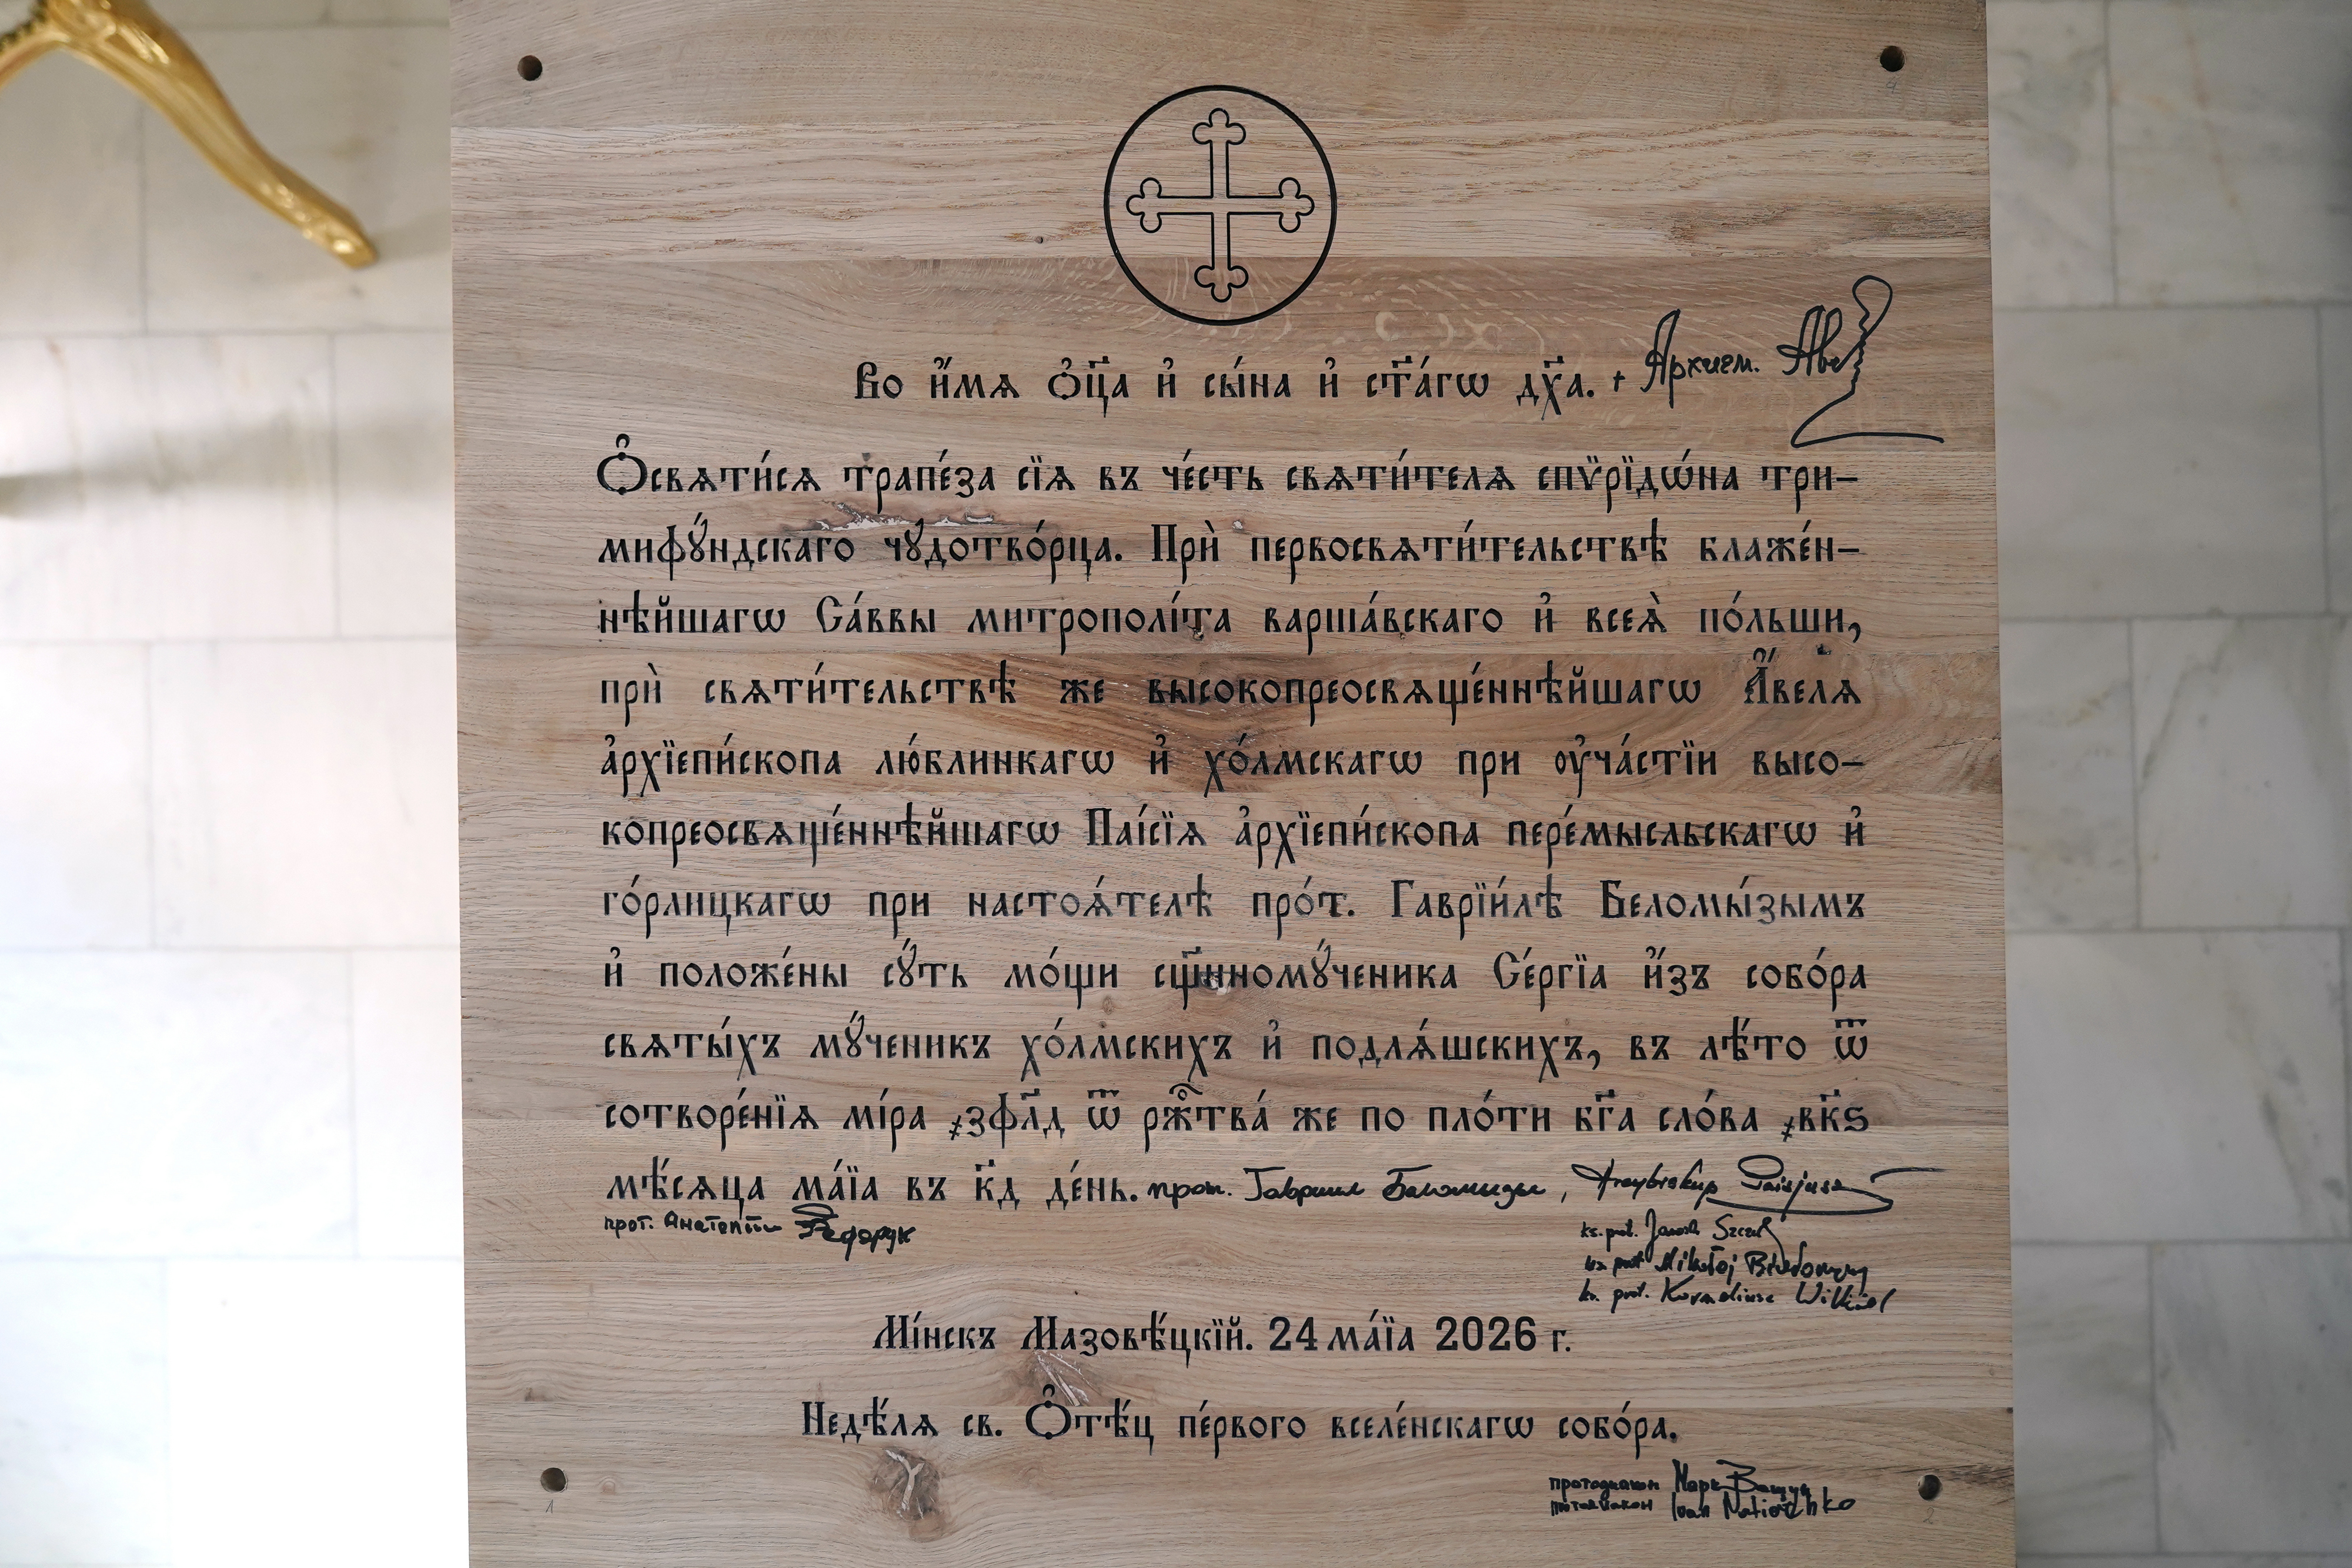 Во и҆́мѧ ѻ҆ц҃а и҆ сы́на и҆ ст҃а́гѡ дх҃а. + Архиеп. Авель
Ѻ҆свѧти́сѧ трапе́за сїѧ въ че́сть свѧти́телѧ спѷрїдѡ́на три-
мифꙋ́ндскаго чꙋдотво́рца. Прѝ первосвѧти́тельствѣ блаже́н-
нѣйшагѡ Са́ввы митрополі́та варша́вскаго и҆ всеѧ̀ по́льши,
прѝ свѧти́тельствѣ же высокопреосвѧще́ннѣйшагѡ А҆́велѧ
а҆рхїепи́скопа лю́блинкагѡ и҆ хо́лмскагѡ при ᲂу҆ча́стїи высо-
копреосвѧще́ннѣйшагѡ Паі́сїѧ а҆рхїепи́скопа пере́мысльскагѡ и҆
го́рлицкагѡ при настоѧ́телѣ про́т. Гаврїи́лѣ Беломы́зымъ
и҆ положе́ны сꙋ́ть мо́щи сщ҃нномꙋ́ченика Се́ргїа и҆́зъ собо́ра
свѧты́хъ мꙋ́ченикъ хо́лмскихъ и҆ подлѧ́шскихъ, въ лѣ́то ѿ
сотворе́нїѧ мі́ра ҂зфл҃д ѿ рж҇тва́ же по пло́ти бг҃а сло́ва ҂вк҃ѕ
мѣ́сѧца ма́їа въ к҃д де́нь. прот. Гавриил Беломызы, Arcybiskup Paisjusz
прот. Анатолий Федорук
ks. prot. Jarosł Szczur
ks. prot. Mikołaj
ks. prot. Korneliusz Wilkiel
Мі́нскъ Мазовѣ́цкїй. 24 ма́їа 2026 г.
Недѣ́лѧ св. Ѻ҆тѣ́ц пе́рвого вселе́нскагѡ собо́ра.
протодиакон Марк
протодиакон Ivan